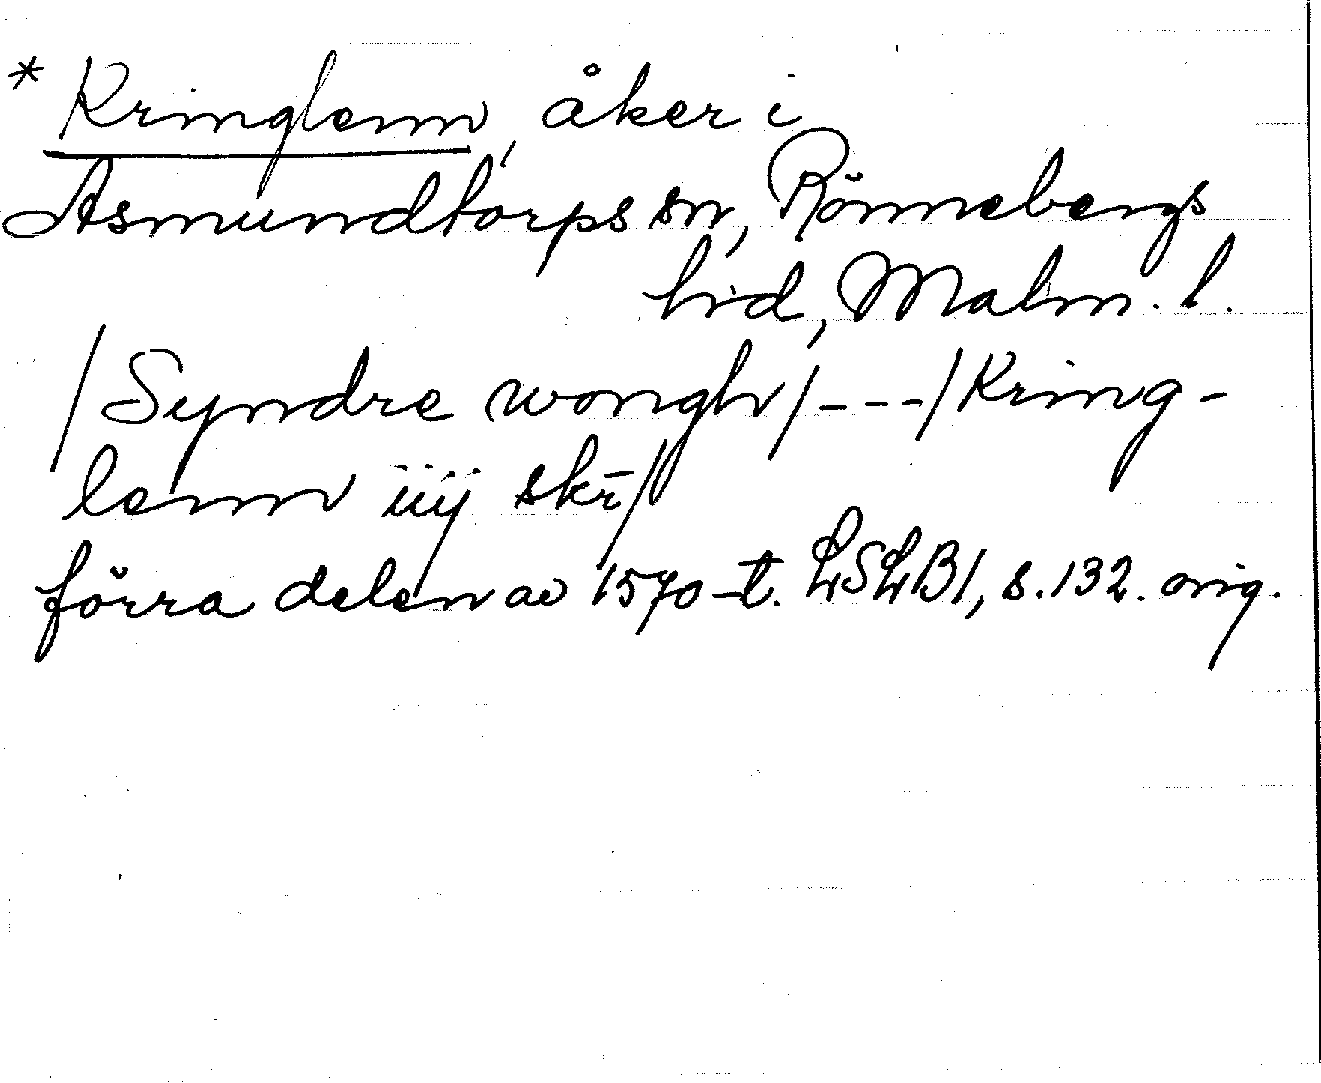 * Kringlenn, åker i
Asmundtorps sn, Rönnebergs
hd, Malm. l.
/Syndre wongh/---/Kring-
lenn iiij skr̄/
förra delen av 1570-t. LSLB1, s.132. orig.